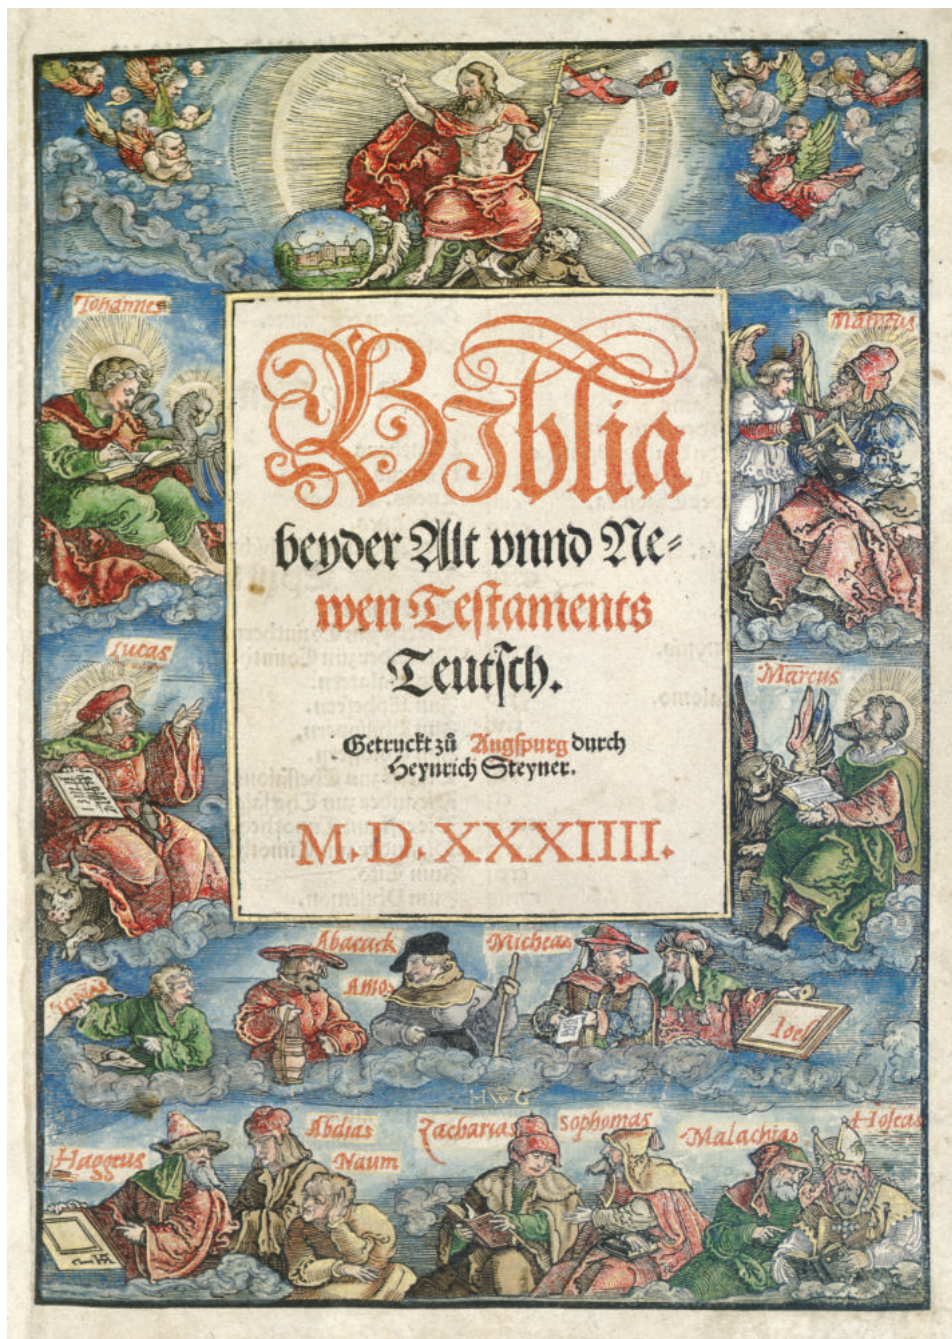 Johannes
Matheus
Biblia
beyder Alt vnnd Ne⸗
wen Teſtaments
Teutſch.
Getruckt zů Augſpurg durch
Heynrich Steyner.
M. D. XXXIIII.
Lucas
Marcus
Abacuck
Micheas
Amos
Jonas
Joel
HWG
Abdias
Zacharias
Sophonias
Malachias
Hoſeas
Haggeus
Naum